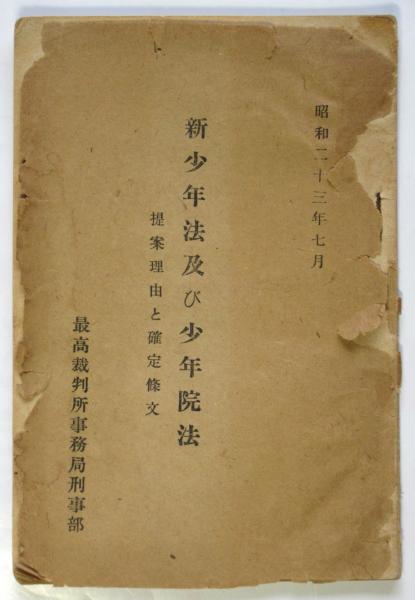 昭和二十三年七月
新少年法及び少年院法
提案理由と確定條文
最高裁判所事務局刑事部